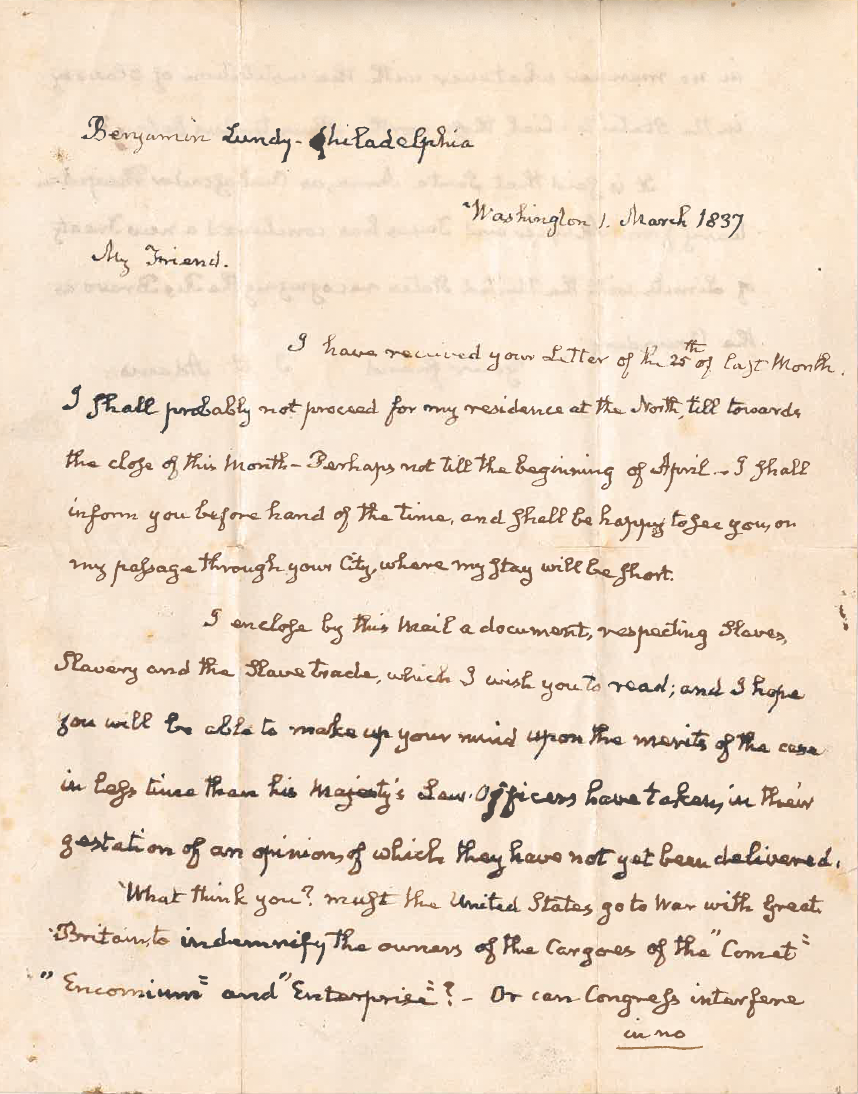 Benjamin Lundy - Philadelphia
Washington 1. March 1837
My Friend.
I have received your Letter of the 25th of last Month.
I shall probably not proceed for my residence at the North, till towards
the close of this Month - Perhaps not till the beginning of April. - I shall
inform you before hand of the time, and shall be happy to see you, on
my passage through your City, where my stay will be short.
I enclose by this Mail a document, respecting Slaves,
Slavery and the Slave trade, which I wish you to read; and I hope
you will be able to make up your mind upon the merits of the case
in less time than his Majesty's Law Officers have taken, in their
gestation of an opinion, of which they have not yet been delivered.
What think you? must the United States go to War with Great
Britain, to indemnify the owners of the Cargoes of the "Comet"
"Encomium" and "Enterprise"? - Or can Congress interfere
in no